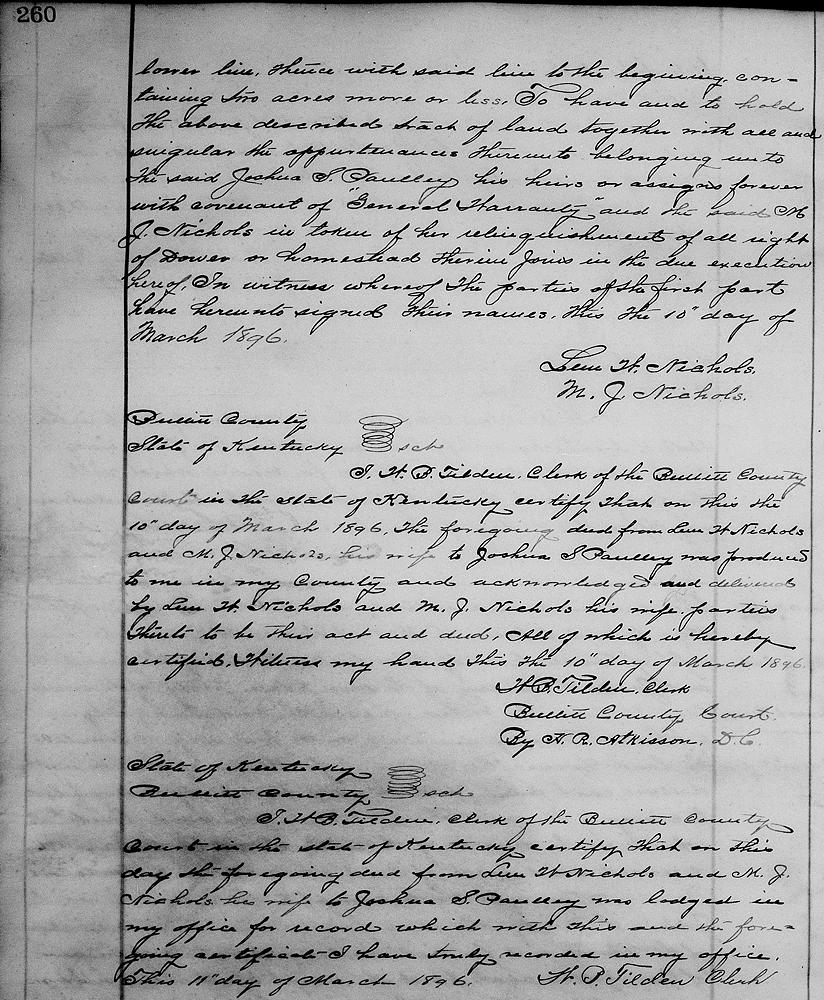 260
lower line, thence with said line to the begining, con-
taining two acres more or less. To have and to hold
the above described tract of land together with all and
singular the appurtenances thereunto belonging unto
the said Joshua S. Paulley his heirs or assigns forever
with covenant of "General Warranty" and the said M
J. Nichols in token of her relinquishment of all right
of Dower or homestead therein joins in the due execution
hereof. In witness whereof the parties of the first part
have hereunto signed their names. This the 10" day of
March 1896.
Lem W. Nichols.
M. J. Nichols.
Bullitt County
State of Kentucky } sct
I, W. B. Tilden, Clerk of the Bullitt County
Court in the State of Kentucky certify that on this the
10" day of March 1896, the foregoing deed from Lem W Nichols
and M. J. Nichols, his wife to Joshua S Paulley was produced
to me in my County and acknowledged and delivered
by Lem W. Nichols and M. J. Nichols his wife parties
thereto to be their act and deed. All of which is hereby
certified. Witness my hand this the 10" day of March 1896.
W B. Tilden, Clerk
Bullitt County Court.
By A. R. Atkisson, D.C.
State of Kentucky
Bullitt County } sct
I. W B. Tilden, Clerk of the Bullitt County
Court in the state of Kentucky certify that on this
day the foregoing deed from Lem W Nichols and M. J.
Nichols his wife to Joshua S. Paulley was lodged in
my office for record which with this and the fore-
going certificate I have truly recorded in my office.
This 11" day of March 1896. W. B. Tilden Clerk